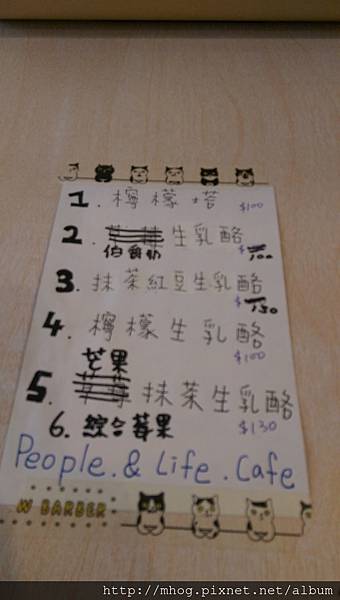 1. 檸檬塔 $100
2. 生乳酪 $100
伯爵奶
3. 抹茶紅豆生乳酪
$130
4. 檸檬生乳酪
$100
芒果
5. 抹茶生乳酪
6. 綜合莓果 $130
People. & Life. Cafe
W BARBER
http://mhog.pixnet.net/album